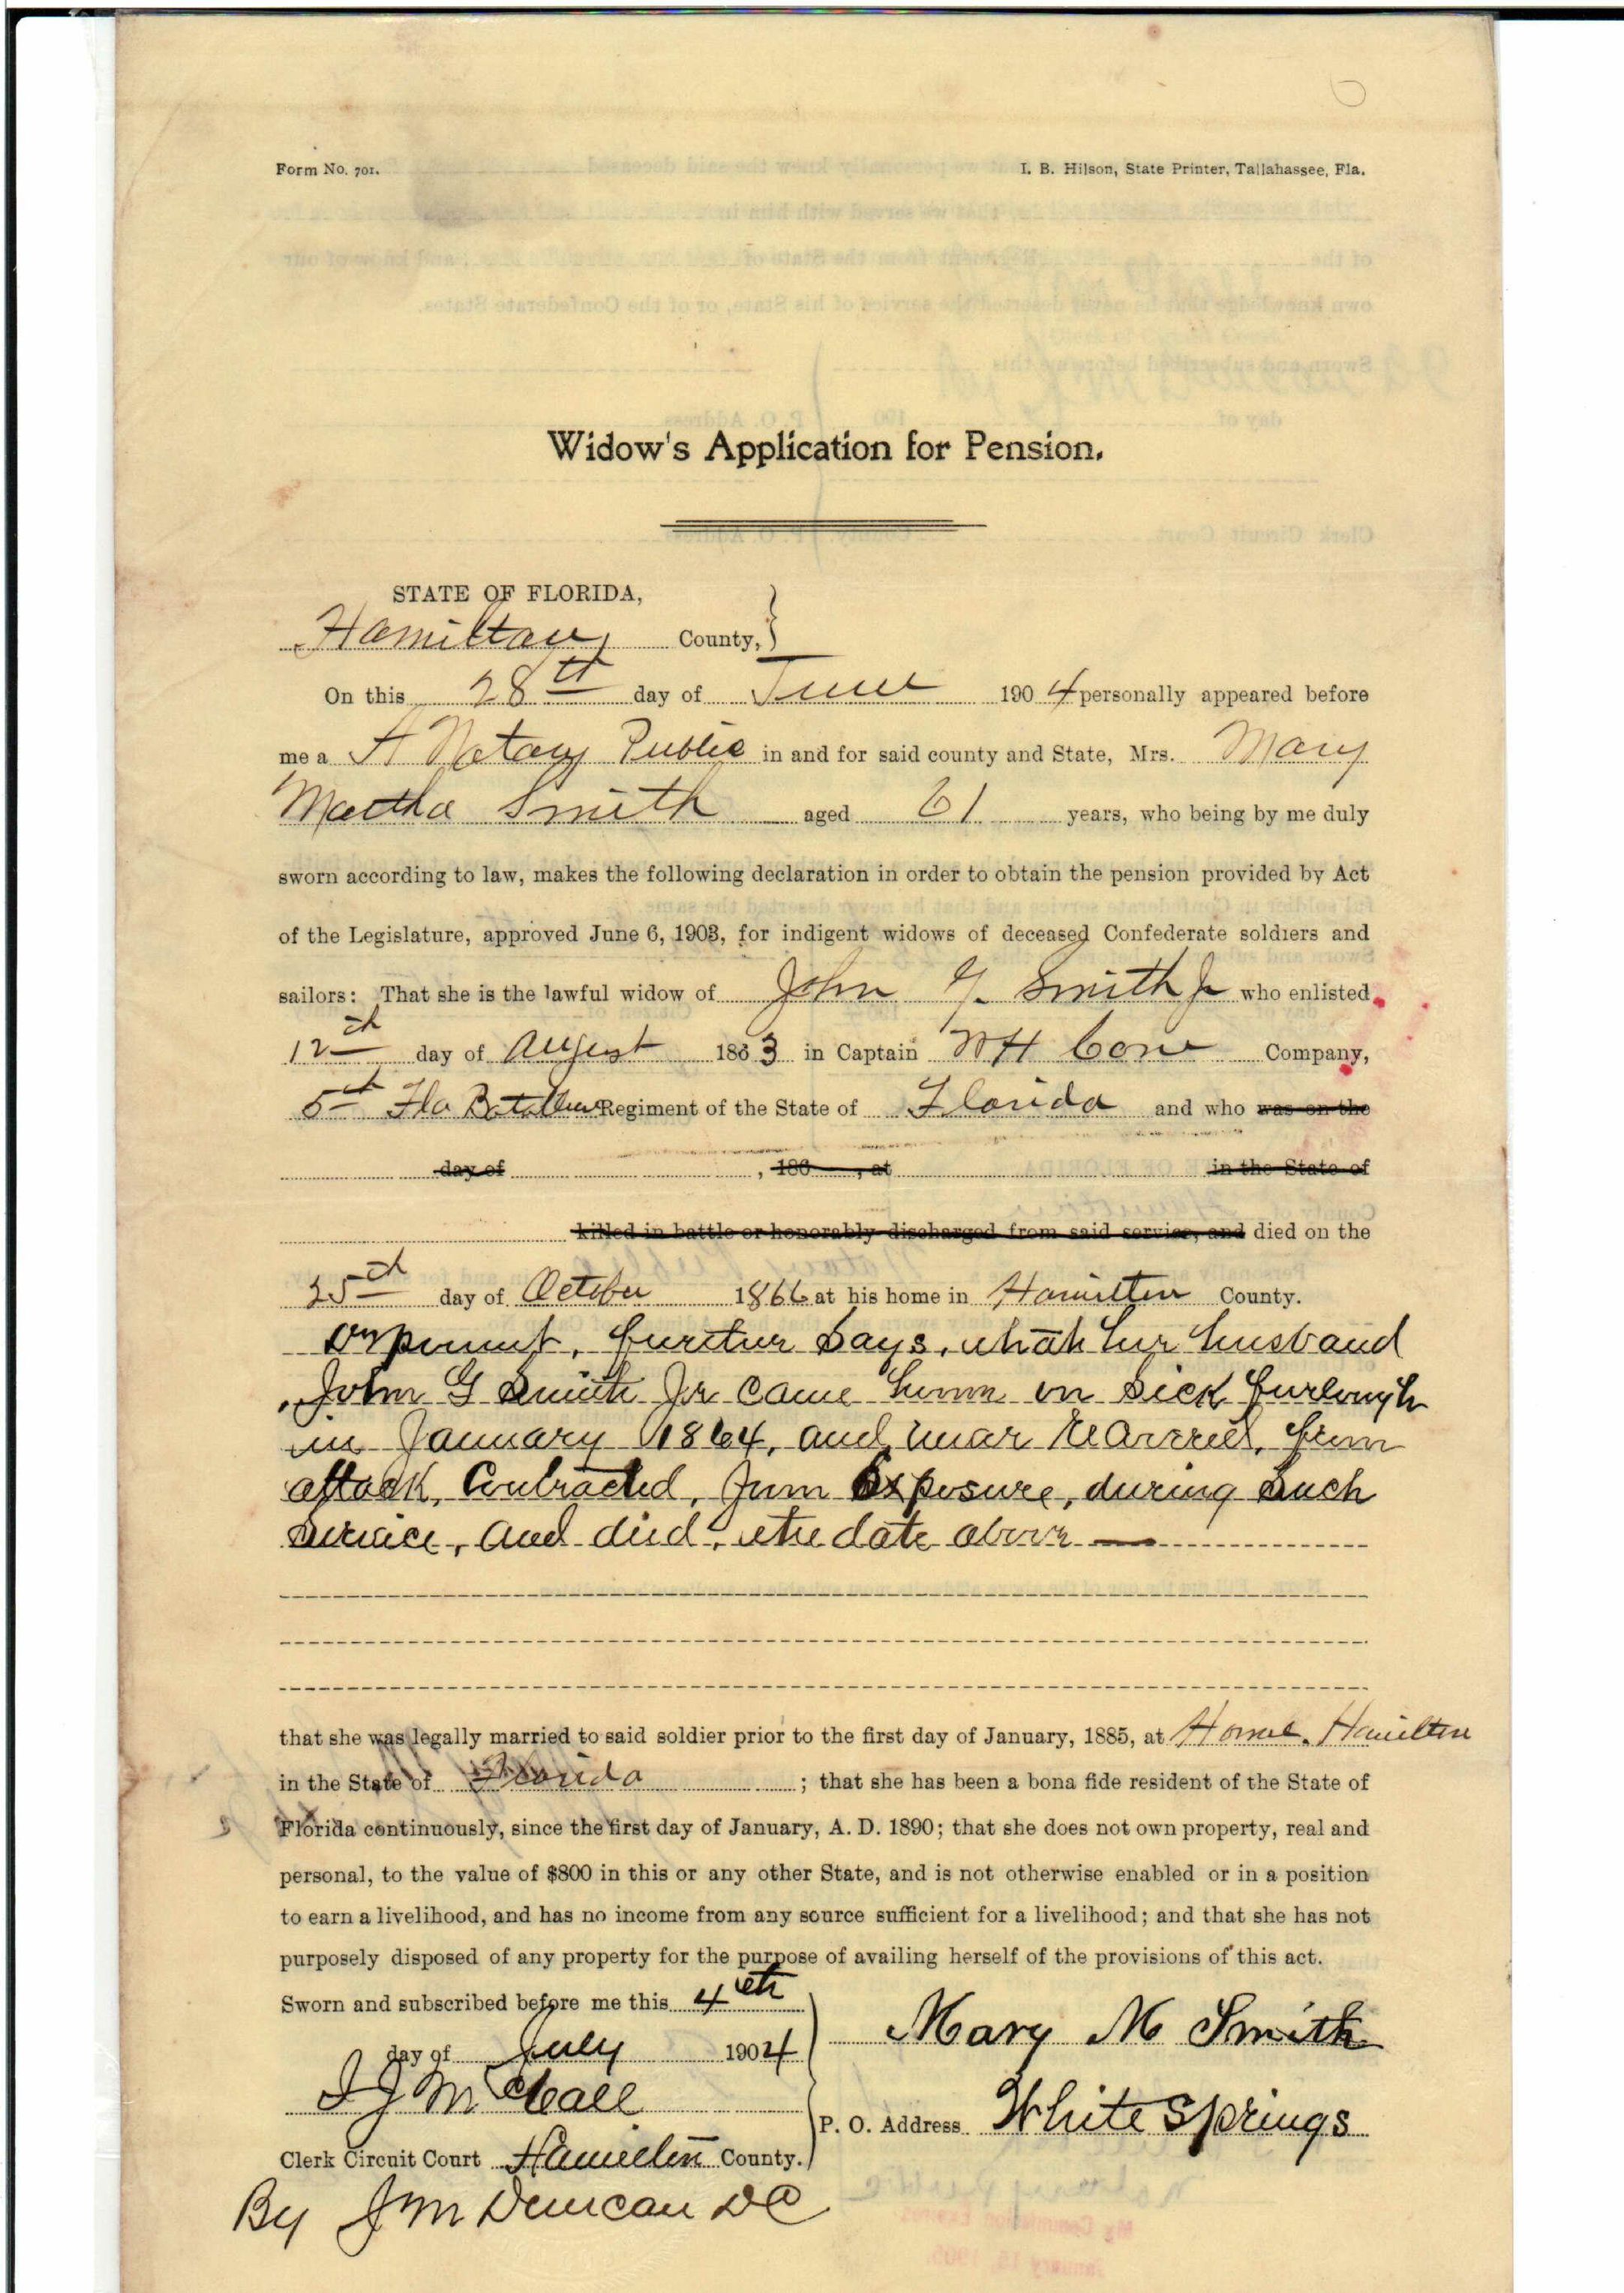 Form No. 701.
I. B. Hilson, State Printer, Tallahassee, Fla.
Widow's Application for Pension.
STATE OF FLORIDA,
Hamilton County,
On this 28th day of June 1904 personally appeared before
me a A Notary Public in and for said county and State, Mrs. Mary
Martha Smith aged 61 years, who being by me duly
sworn according to law, makes the following declaration in order to obtain the pension provided by Act
of the Legislature, approved June 6, 1903, for indigent widows of deceased Confederate soldiers and
sailors: That she is the lawful widow of John G. Smith Jr who enlisted
12th day of August 1863 in Captain WH Cone Company,
5th Fla Batallion Regiment of the State of Florida and who was on the
day of , 186 , at in the State of
killed in battle or honorably discharged from said service, and died on the
25th day of October 1866 at his home in Hamilton County.
Deponent, further says, that her husband
John G Smith Jr came home on sick furlough
in January 1864, and never from
attack, Contracted, from Exposure, during such
service, and died, the date above —
that she was legally married to said soldier prior to the first day of January, 1885, at Home. Hamilton
in the State of Florida ; that she has been a bona fide resident of the State of
Florida continuously, since the first day of January, A. D. 1890; that she does not own property, real and
personal, to the value of $800 in this or any other State, and is not otherwise enabled or in a position
to earn a livelihood, and has no income from any source sufficient for a livelihood; and that she has not
purposely disposed of any property for the purpose of availing herself of the provisions of this act.
Sworn and subscribed before me this 4th
day of July 1904
Mary M Smith
J J McCall
P. O. Address White Springs
Clerk Circuit Court Hamilton County.
By J M Duncan DC